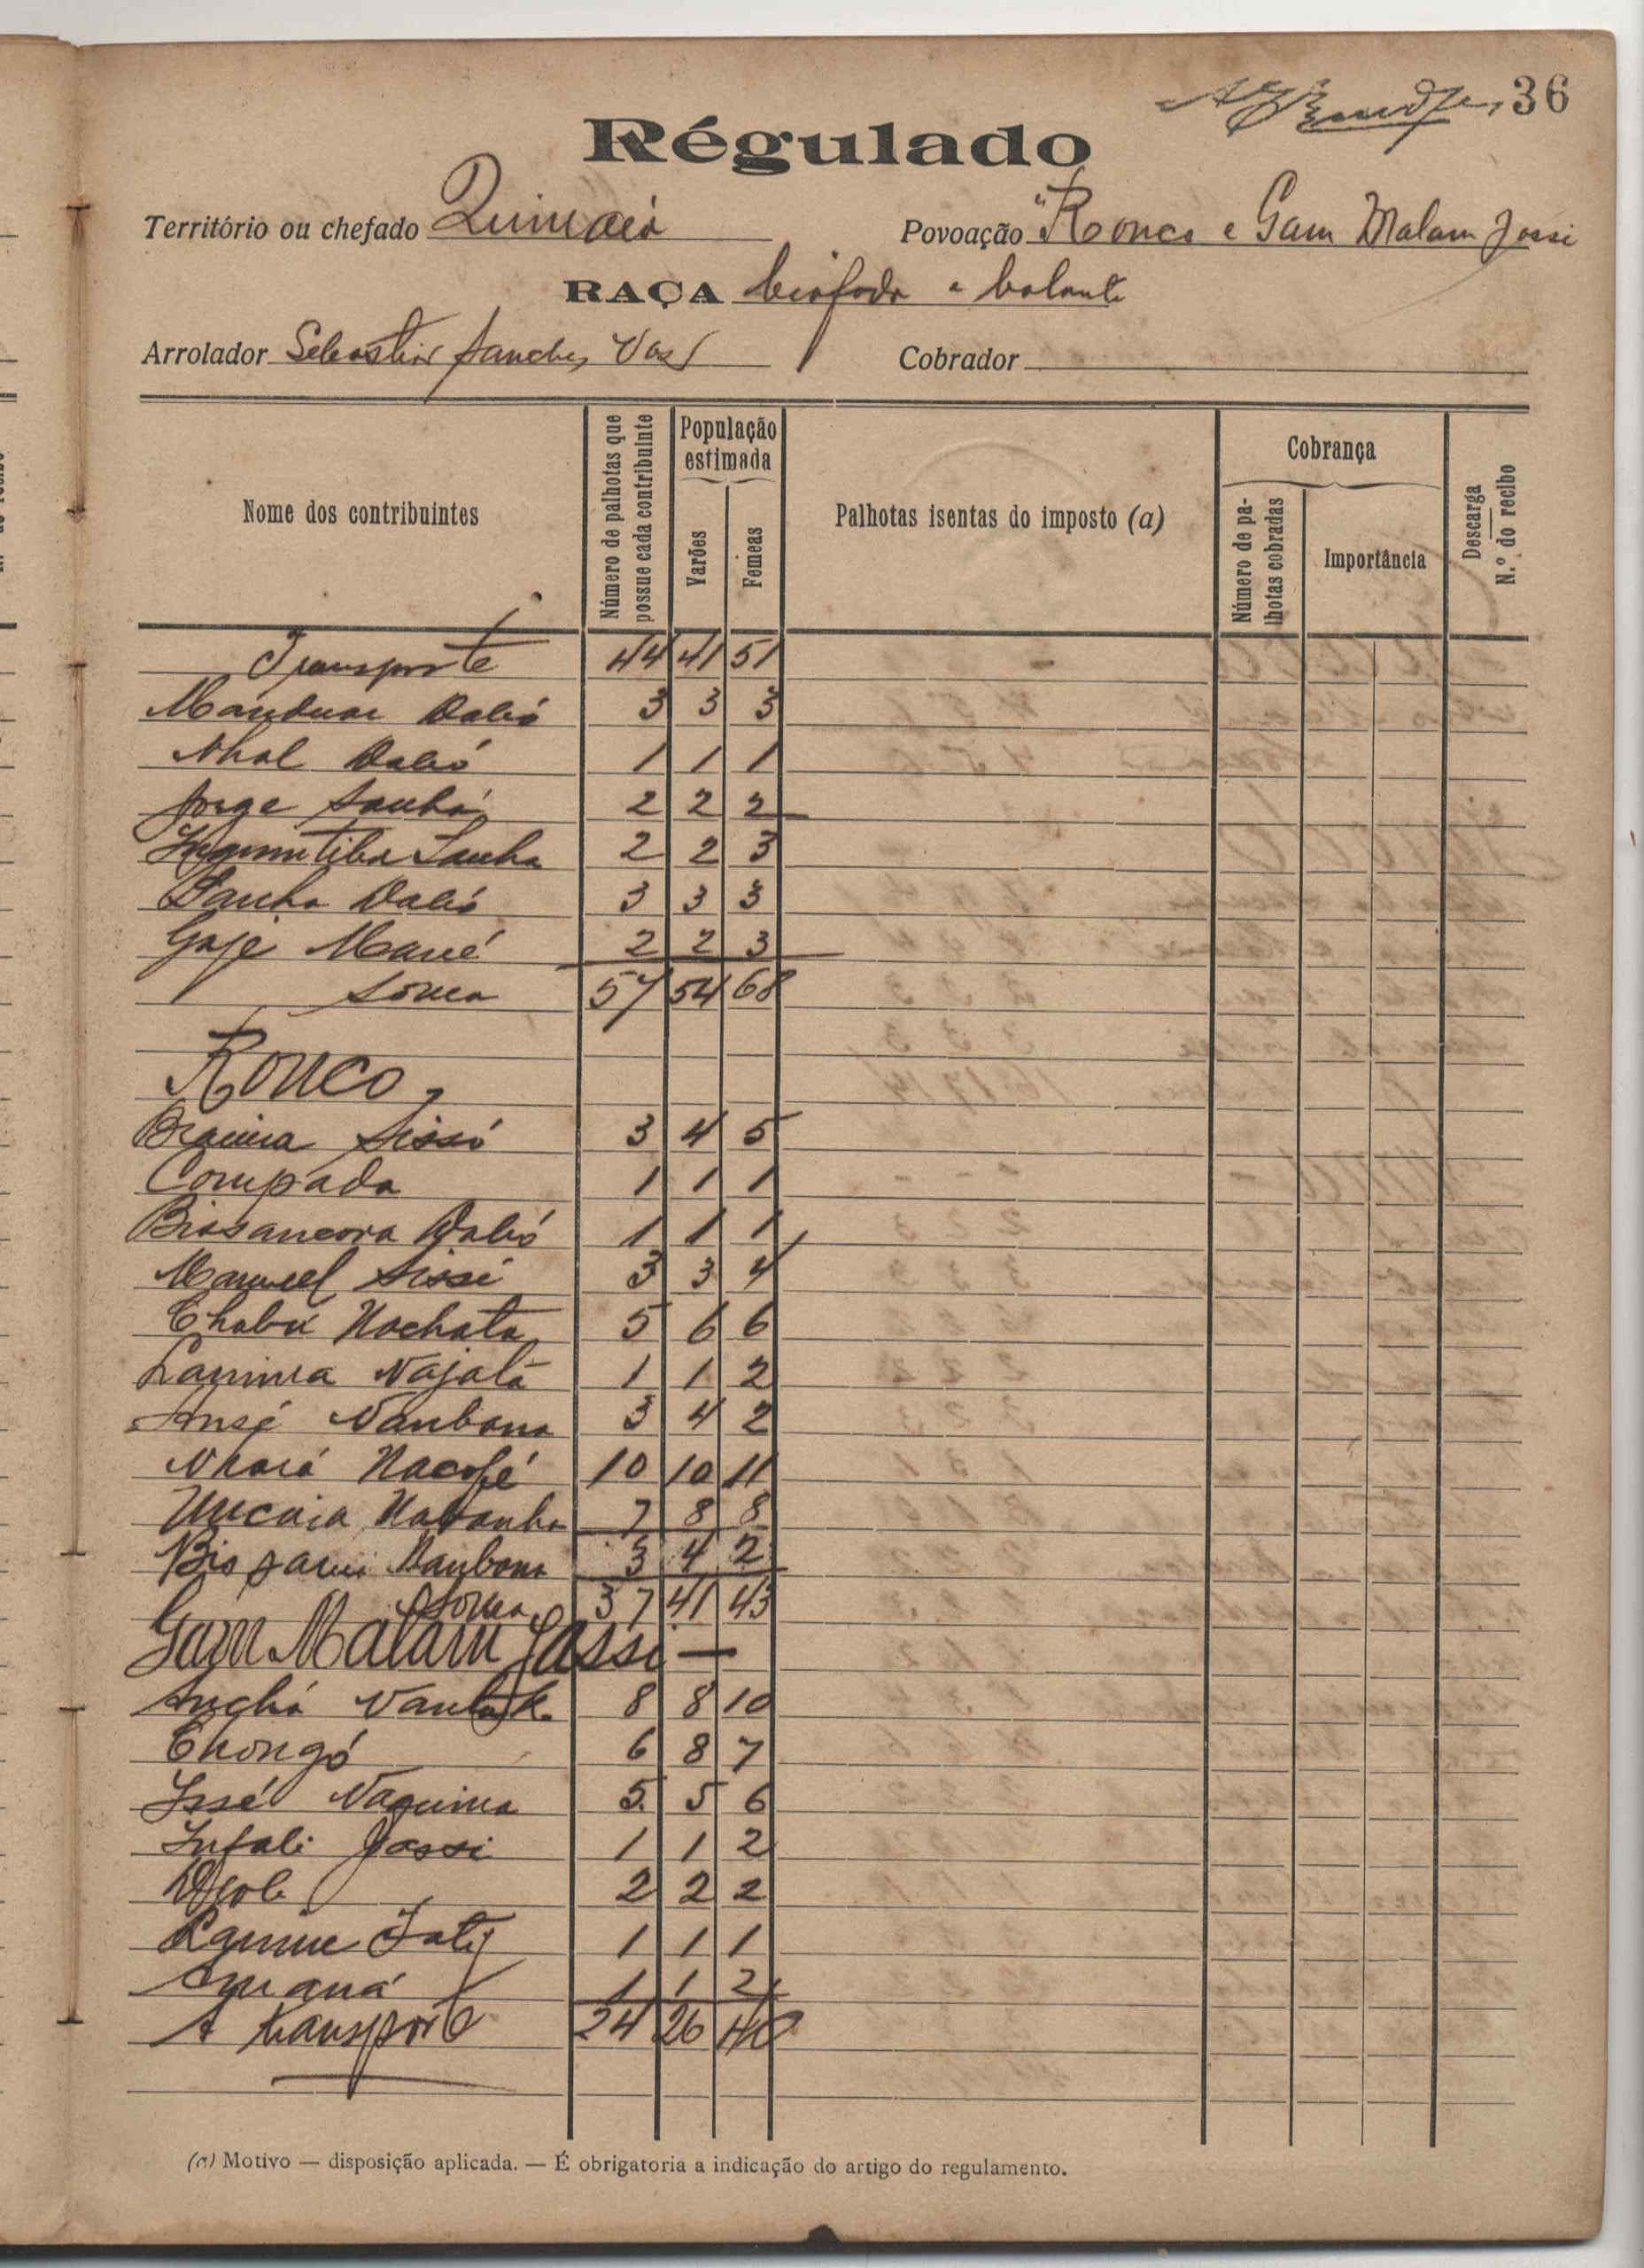 36
Régulado
Território ou chefado Quinará Povoação "Ronco e Gam Malam Jassi
RAÇA biafada e balanta
Arrolador Sebastião Sanches Vaz Cobrador
Nome dos contribuintes
Número de palhotas que possue cada contribuinte
População estimada
Varões
Femeas
Palhotas isentas do imposto (a)
Cobrança
Número de palhotas cobradas
Importância
Descarga
N.º do recibo
Transporte 44 41 51
Manduar Dabó 3 3 3
Nhal Dabó 1 1 1
Jorge Sanhá 2 2 2
Sanha 2 2 3
Sanha Dabó 3 3 3
Gaje Mané 2 2 3
Soma 57 54 68
Ronco
Braima Sissó 3 4 5
Compada 1 1 1
Biasancora Dabó 1 1 1
Manuel Sissé 3 3 4
Chabu Nachata 5 6 6
Lamina Najatá 1 1 2
Ansé Nanbana 3 4 2
Nhaiá Nacofé 10 10 11
Uncaia 7 8 8
Nanbana 3 4 2
Soma 37 41 43
Gam Malam Jassi —
8 8 10
Chongó 6 8 7
Issé Naquima 5 5 6
Infali Jassi 1 1 2
2 2 2
Lamine Faty 1 1 1
1 1 2
A transporte 24 26
(a) Motivo — disposição aplicada. — É obrigatoria a indicação do artigo do regulamento.